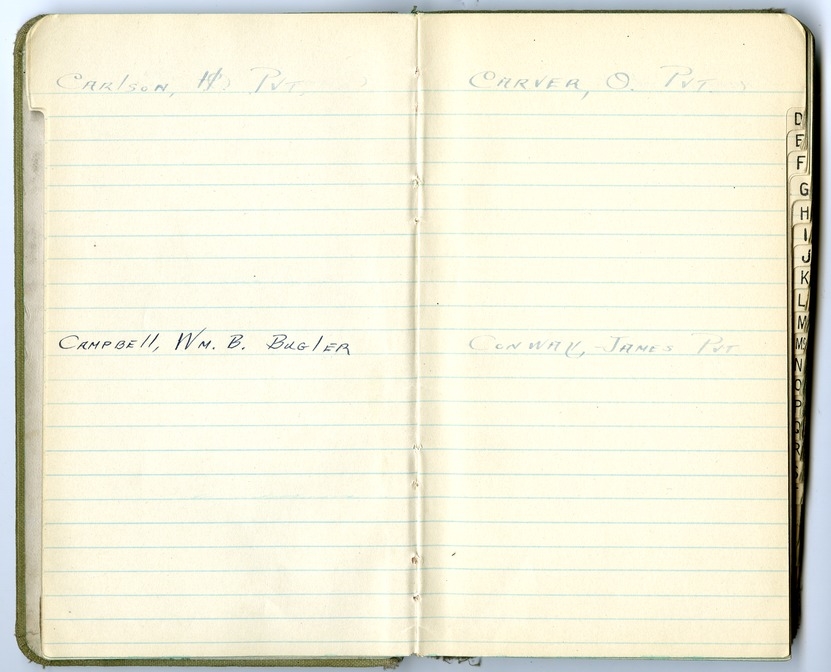 Carlson, Pvt.
Campbell, Wm. B. Bugler
Carver, O. Pvt.
Conway, James Pvt
D
E
F
G
H
I
J
K
L
M
Mc
N
O
P
Q
R